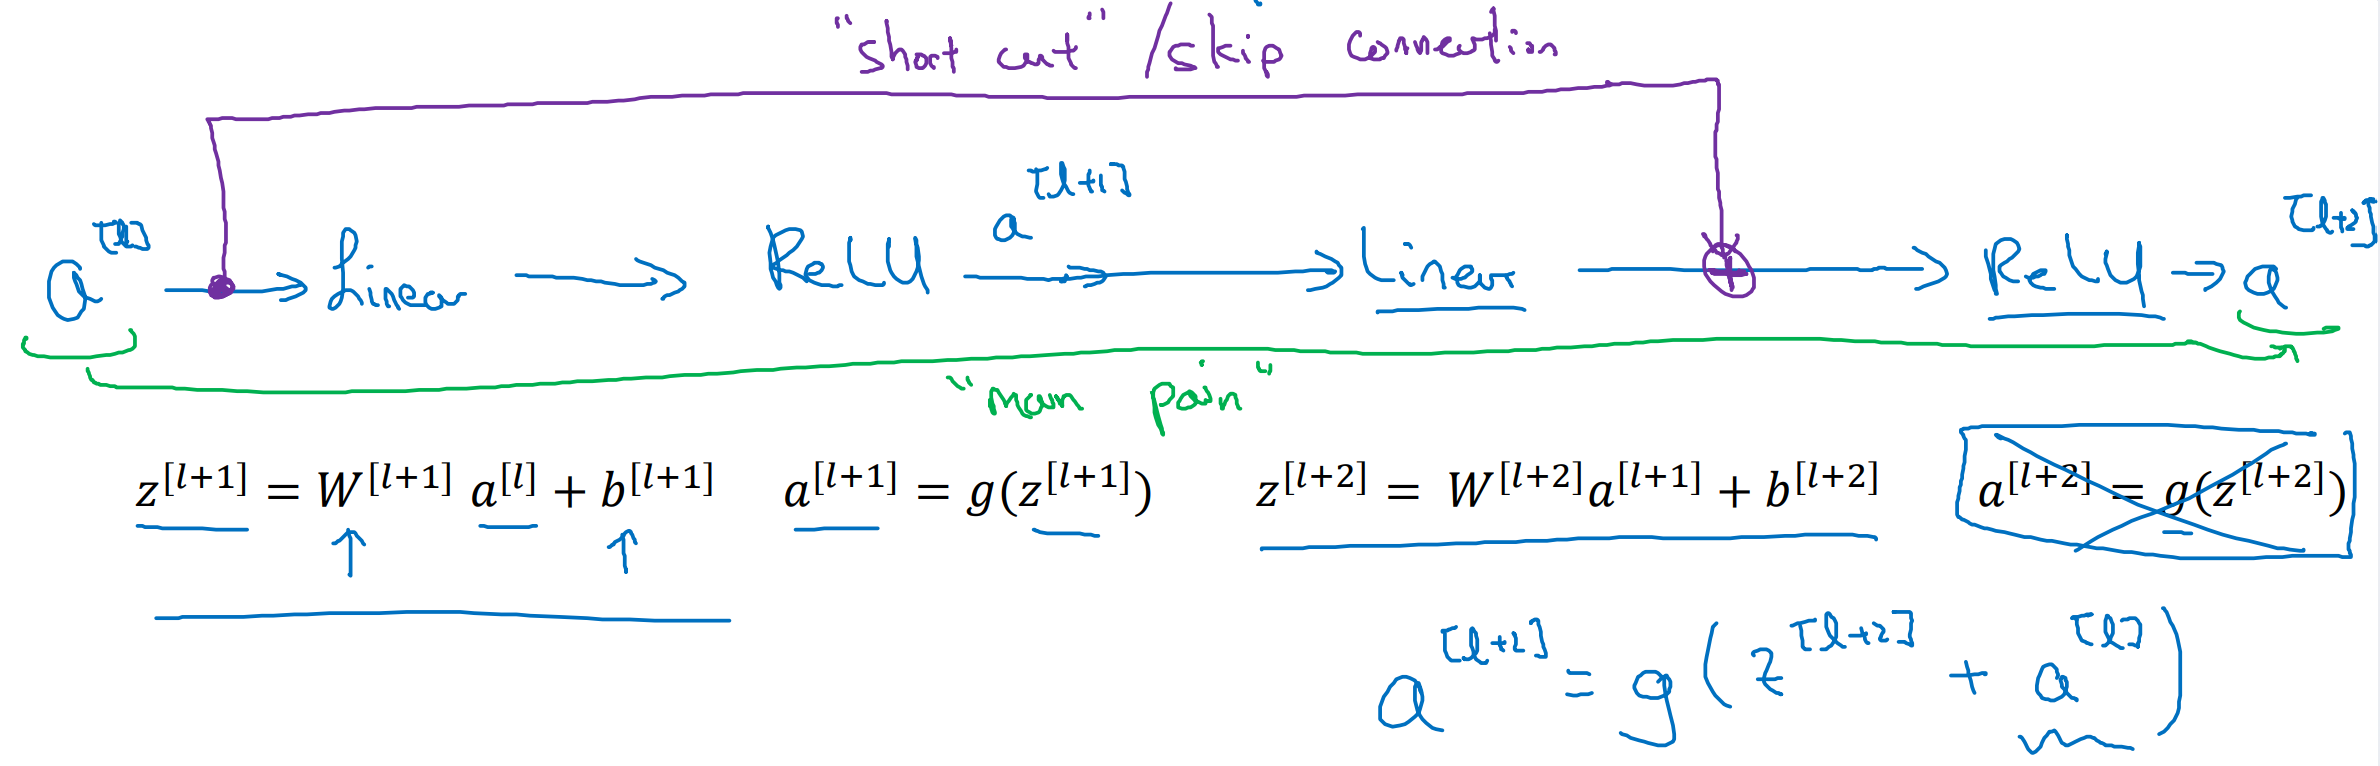 "short cut" / skip connection
a^[l] → Linear → ReLU a^[l+1] → Linear → + → ReLU → a^[l+2]
"main path"
z^[l+1] = W^[l+1] a^[l] + b^[l+1] a^[l+1] = g(z^[l+1]) z^[l+2] = W^[l+2] a^[l+1] + b^[l+2] a^[l+2] = g(z^[l+2])
a^[l+2] = g(z^[l+2] + a^[l])